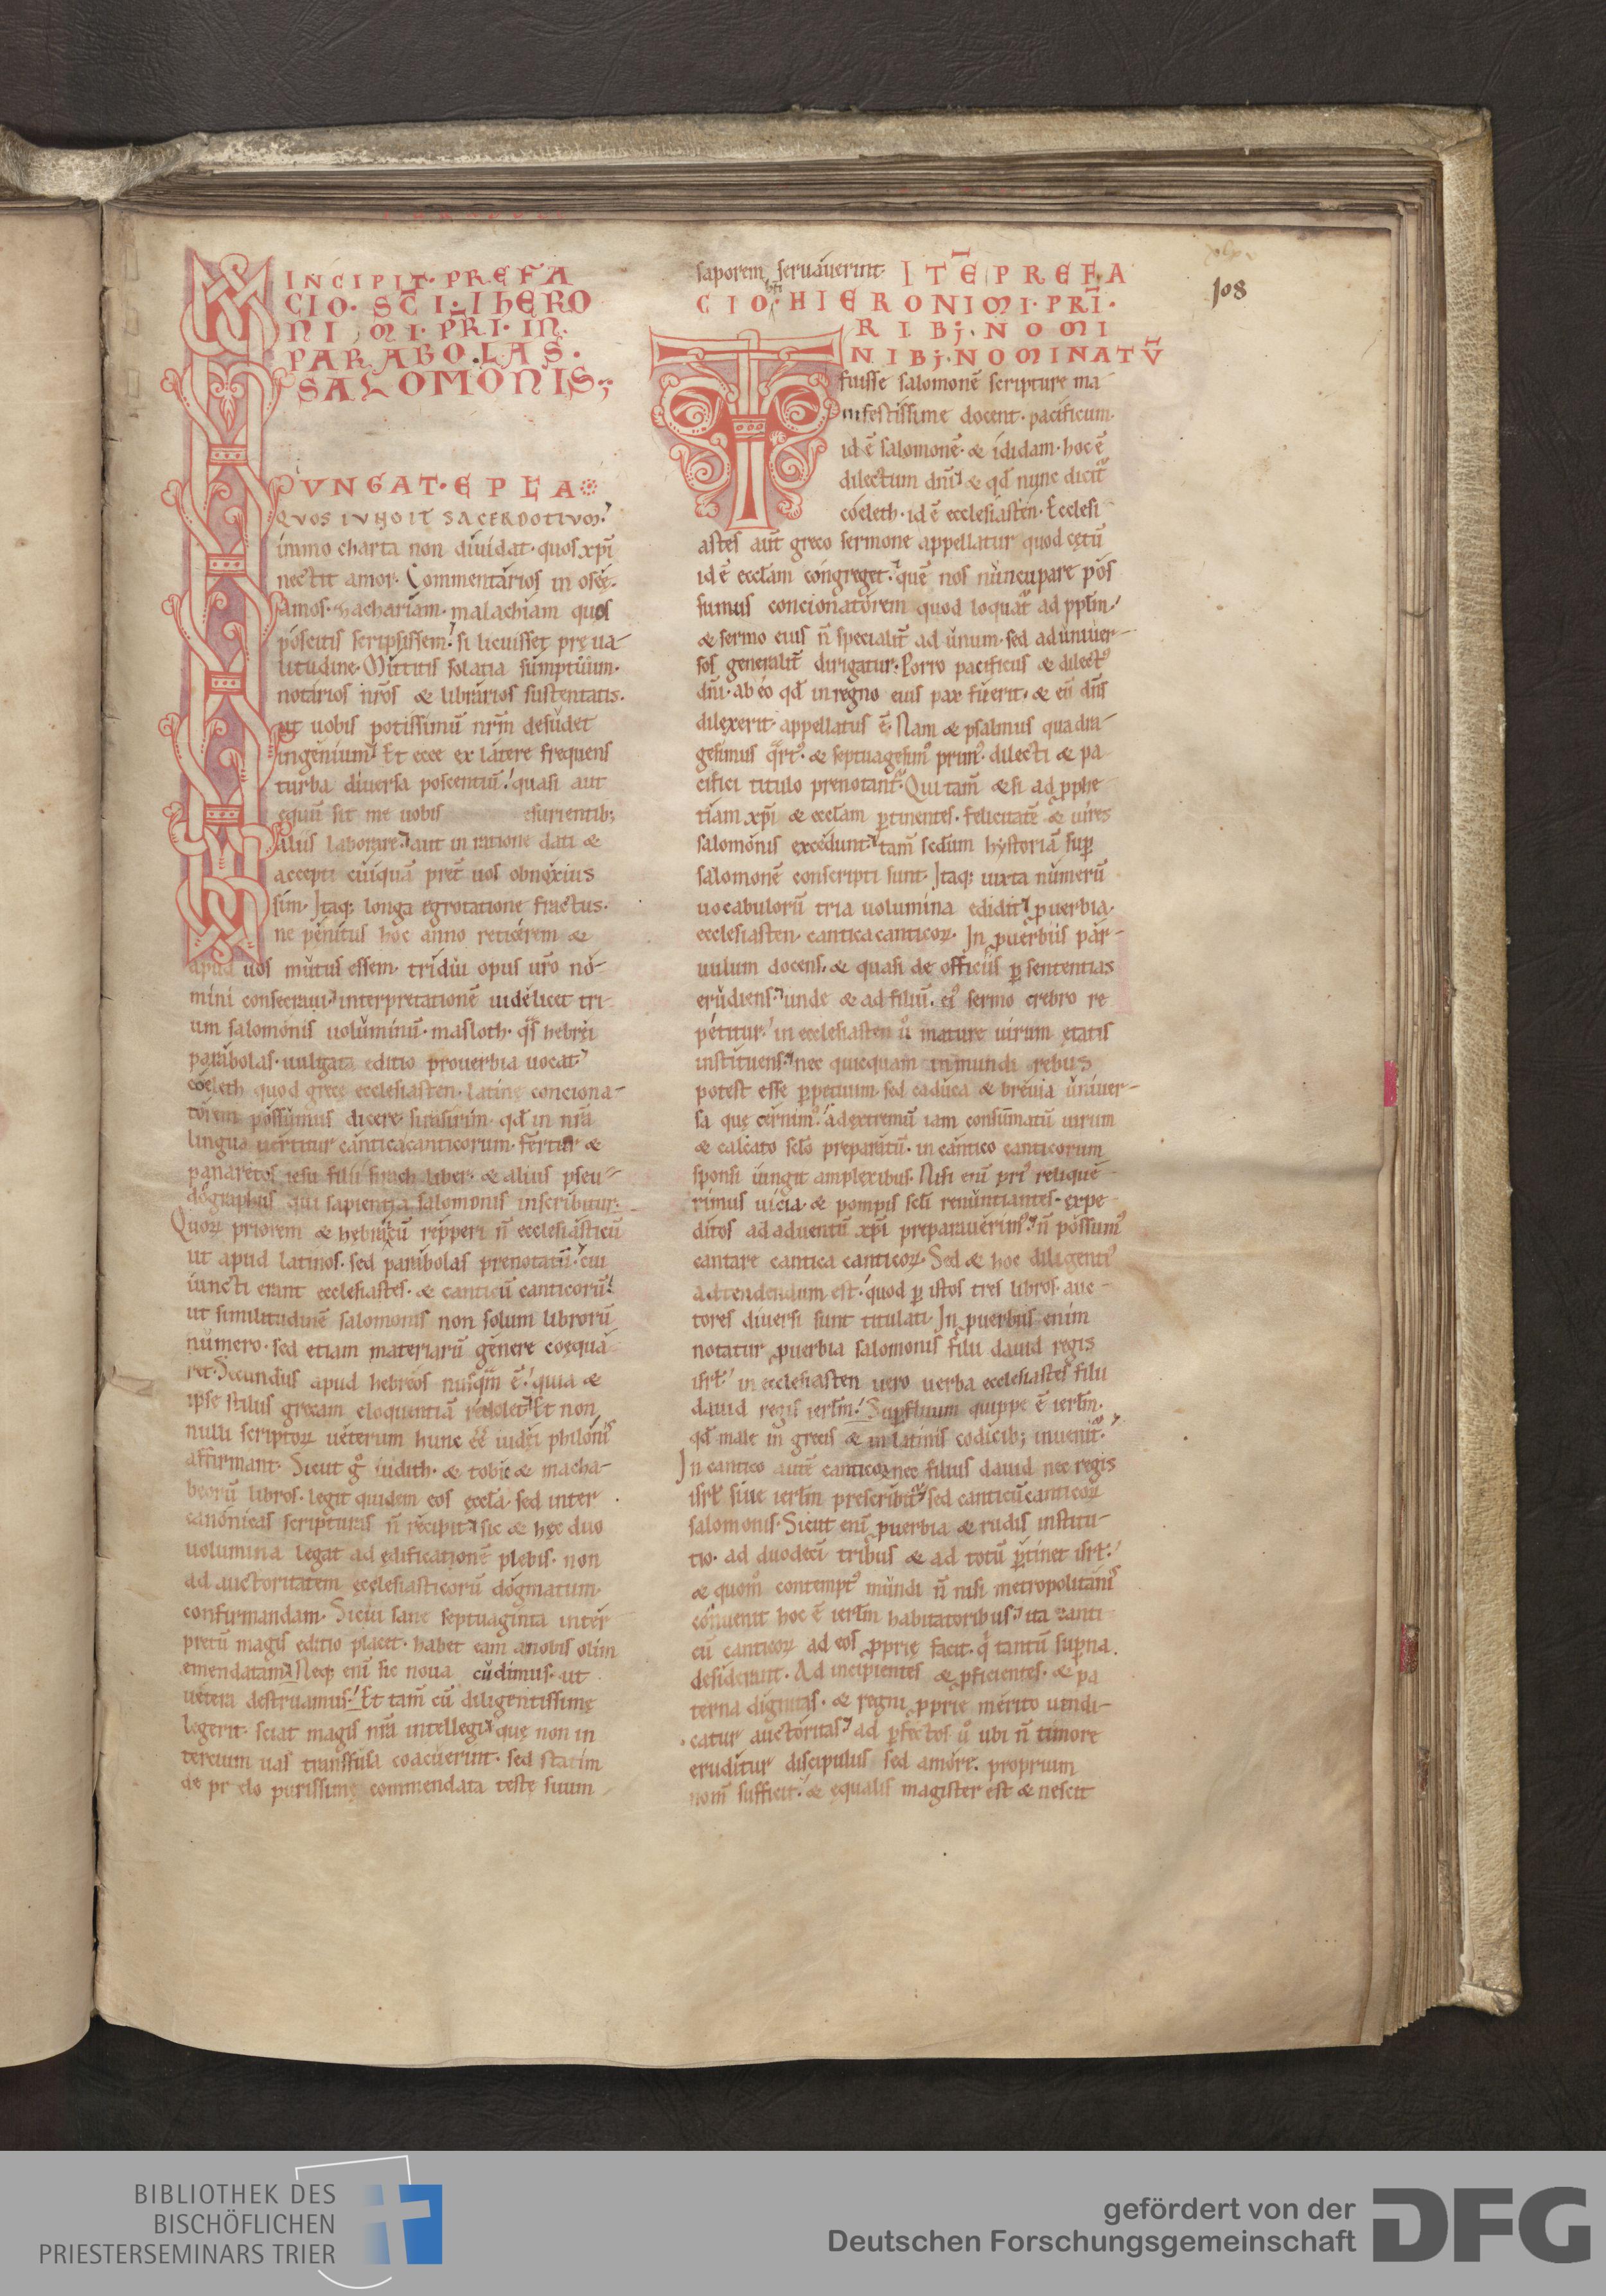 INCIPIT· PREFA
CIO· SCI· IHERO
NIMI· PRI· IN·
PARABOLAS·
SALOMONIS;
IUNGAT· EPLA
QVOS IVNGIT SACERDOTIVM·
immo charta non diuidat· quos xpi
nectit amor· Commentarios in osee·
amos· zachariam· malachiam quos
poscitis scripsissem· si licuisset pre ua-
litudine· Mittitis solatia sumptuum·
notarios nros & librarios sustentatis·
ut uobis potissimū nrm desudet
ingenium· Et ecce ex latere frequens
turba diuersa poscentiū· quasi aut
equū sit me uobis esurientib;
aliis laborare· aut in ratione dati &
accepti cuiquā pret uos obnoxius
sim· Itaq; longa egrotatione fractus·
ne penitus hoc anno reticerem &
apud uos mutus essem· tridui opus uro no-
mini consecraui· interpretationē uidelicet tri-
um salomonis uoluminū· masloth· qs hebrei
parabolas· uulgata editio prouerbia uocat·
coeleth quod grece ecclesiasten· latine conciona-
torem possumus dicere· sirasirim· qd in nra
lingua uertitur canticacanticorum· Fertur &
panaretos iesu filii sirach liber· & alius pseu-
dographus qui sapientia salomonis inscribitur·
Quoꝝ priorem & hebraicū repperi n̄ ecclesiasticū
ut apud latinos· sed parabolas prenotatū· cui
iuncti erant ecclesiastes· & canticū canticorū·
ut similitudinē salomonis non solum librorū
numero· sed etiam materiarū genere coequa-
ret· Secundus apud hebreos nusqm ē· quia &
ipse stilus grecam eloquentiā redolet· Et non
nulli scriptoꝝ ueterum hunc eē iudei philonis
affirmant· Sicut g° iudith· & tobie & macha-
beorū libros· legit quidem eos eccla· sed inter
canonicas scripturas n̄ recipit· sic & hec duo
uolumina legat ad edificationē plebis· non
ad auctoritatem ecclesiasticorū dogmatum
confirmandam· Sicui sane septuaginta inter-
pretū magis editio placet· habet eam anobis olim
emendatam· Neq; enī sic noua cudimus· ut
uetera destruamus· Et tam cū diligentissime
legerit· sciat magis nra intellegi· que non in
tercium uas transfusa coacuerint· sed statim
de prelo purissime commendata teste suum
saporem seruauerint· ITĒ PREFA
CIO· HIERONIMI· PRI·
TRIBj· NOMI
NIBj· NOMINATŪ
fuisse salomonē scripture ma
nifestissime docent· pacificum·
id ē salomonē· & ididam· hoc ē
dilectum dni· & qd nunc dicit
coeleth· id ē ecclesiasten· Ecclesi
astes aut greco sermone appellatur quod cetū
id ē ecclam congreget· quē nos nuncupare pos
sumus concionatorem quod loquat ad pplm·
& sermo eius n̄ specialit ad unum· sed ad uniuer-
sos generalit dirigatur· Porro pacificus & dilect'
dni· ab eo qd in regno eius pax fuerit· & eū dns
dilexerit· appellatus ē· Nam & psalmus quadra-
gesimus qrt'· & septuagesim' prim'· dilecti & pa
cifici titulo prenotant· Qui tam &si ad pphe
tiam xpi & ecclam ptinentes· felicitatē & uires
salomonis excedunt· tam secdum hystoriā sup
salomonē conscripti sunt· Itaq; iuxta numerū
uocabulorū tria uolumina edidit· puerbia·
ecclesiasten· cantica canticoꝝ· In puerbiis par-
uulum docens· & quasi de officiis p sententias
erudiens· unde & ad filiū· ei' sermo crebro re
petitur· in ecclesiasten u° mature uirum etatis
instituens· nec quicquam in mundi rebus
potest esse ppetuum· sed caduca & breuia uniuer-
sa que cernim'· ad extremū iam consumatū uirum
& calcato sclo preparatū· in cantico canticorum
sponsi iungit amplexibus· Nisi enī pri' relique-
rimus uicia· & pompis scli renuntiantes· expe
ditos ad aduentū xpi preparauerim'· n̄ possum'
cantare cantica canticoꝝ· Sed & hoc diligenti'
adtendendum est· quod p istos tres libros· auc-
tores diuersi sunt titulati· In puerbiis enim
notatur puerbia salomonis filii dauid regis
isrl· in ecclesiasten uero uerba ecclesiastes filii
dauid regis ierlm· Supfluum quippe ē ierlm·
qd male in grecis & in latinis codicib; inuenit·
In cantico autē canticoꝝ nec filius dauid nec regis
isrl siue ierlm prescribit· sed canticū canticoꝝ
salomonis· Sicut enī puerbia & rudis institu-
tio· ad duodecī tribus & ad totū ptinet isrl·
& quom° contempt' mundi n̄ nisi metropolitanis
conuenit hoc ē ierlm habitatoribus· ita canti
cū canticoꝝ ad eos pprie facit· q tantū supna
desiderant· Ad incipientes & pficientes· & pa
terna dignitas· & regni pprie merito uendi-
catur auctoritas· ad pfectos u° ubi n̄ timore
eruditur discipulus sed amore· proprium
nom sufficit· & equalis magister est & nescit
108
BIBLIOTHEK DES
BISCHÖFLICHEN
PRIESTERSEMINARS TRIER
gefördert von der
Deutschen Forschungsgemeinschaft
DFG